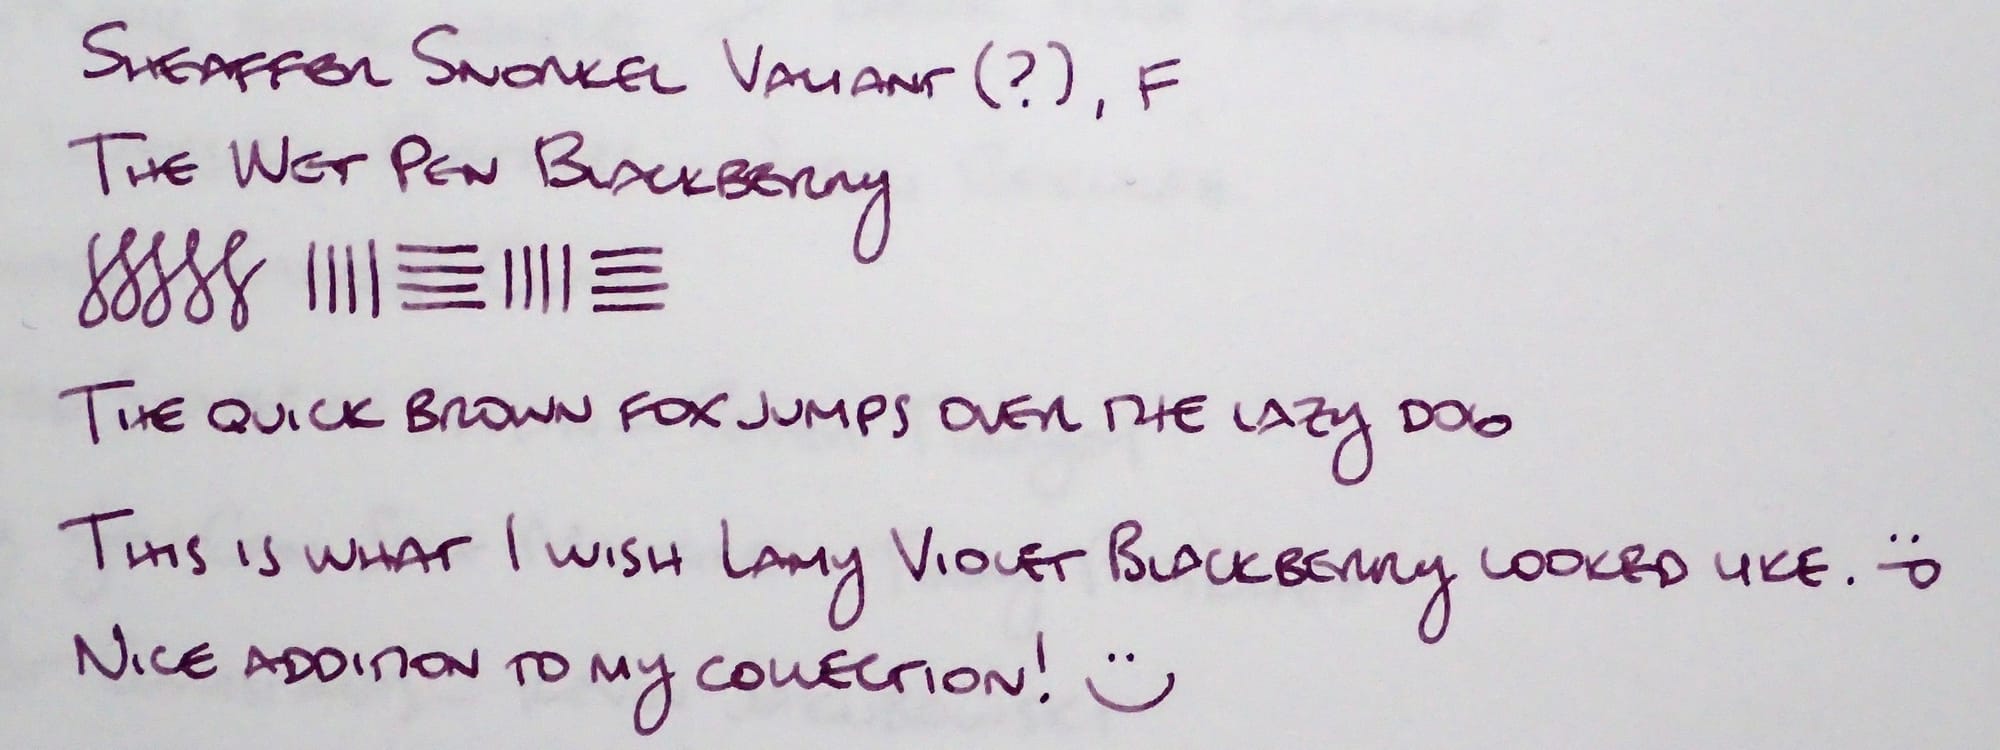 Sheaffer Snorkel Valiant (?), F
The Wet Pen Blackberry
The quick brown fox jumps over the lazy dog
This is what I wish Lamy Violet Blackberry looked like. :P
Nice addition to my collection! :)